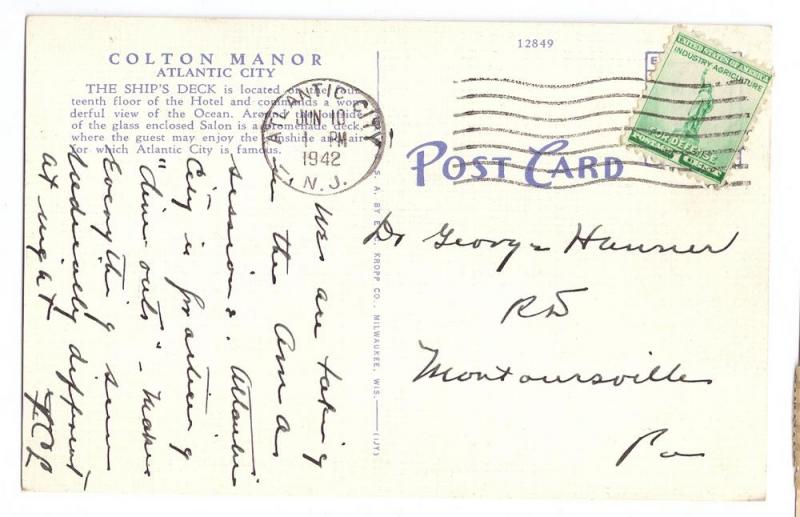 COLTON MANOR
ATLANTIC CITY
THE SHIP'S DECK is located on the four-
teenth floor of the Hotel and commands a won-
derful view of the Ocean. Around the outside
of the glass enclosed Salon is a promenade deck,
where the guest may enjoy the sunshine and air
for which Atlantic City is famous.
We are taking
in the AMA
sessions. Atlantic
City is practicing
"dim outs" - makes
Everything seem
different
at night
12849
ATLANTIC CITY
JUN 10
1 PM
1942
N. J.
UNITED STATES OF AMERICA
INDUSTRY AGRICULTURE
FOR DEFENSE
POSTAGE
POST CARD
U. S. A. BY E. C. KROPP CO., MILWAUKEE, WIS.
(IJY)
Dr George Hanner
RD
Montoursville
Pa